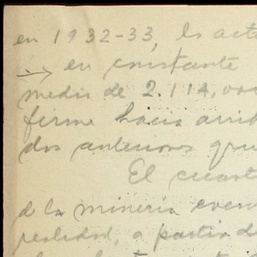 en 1932-33, la act
→ en constante
medio de 2.114,
firme hacia arrib
dos anteriores que
El cuart
de la minería
realidad, a partir d